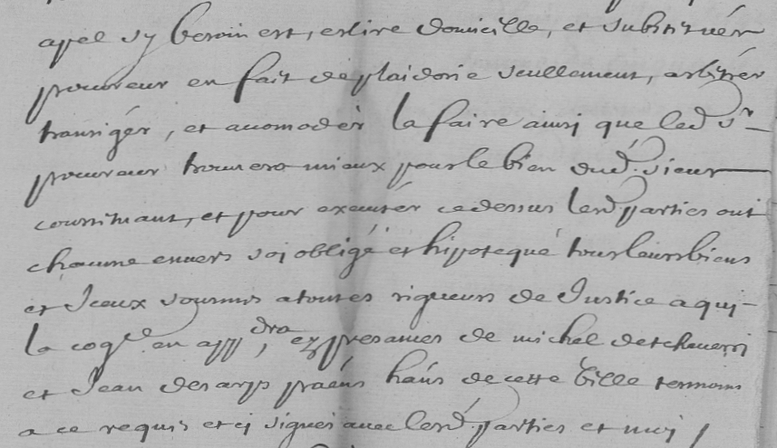 apel sy besoin est, eslire domicille, et substituér
procureur en fait de plaidorie seullement, arbitrer
transigér, et acomodér la faire ainsi que led sr
procureur trouvera mieux pour le bien dud. sieur
constituant, et pour executér cedessus lesd parties ont
chacune envers soi obligé et hipotequé tous leurs biens
et Iceux soumis a toutes rigueurs de Justice a qui
la cogce en app dra, ez presances de michel detcheverri
et Jean praèns haùs de cette Ville temoins
a ce requis et ci signes avec lesd. parties et moi /